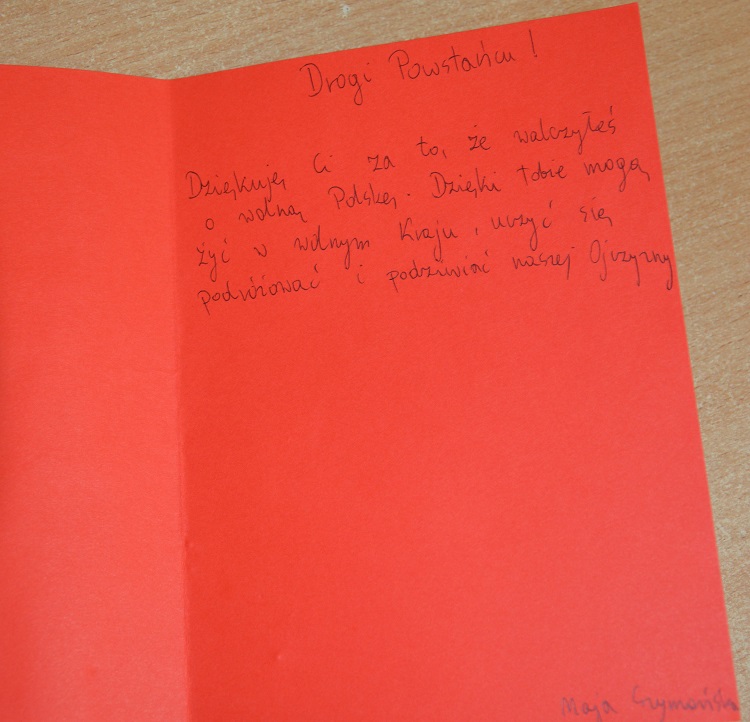 Drogi Powstańcu!
Dziękuję Ci za to, że walczyłeś
o wolną Polskę. Dzięki tobie mogę
żyć w wolnym Kraju, uczyć się
podróżować i podziwiać naszej Ojczyzny
Maja Szymańska